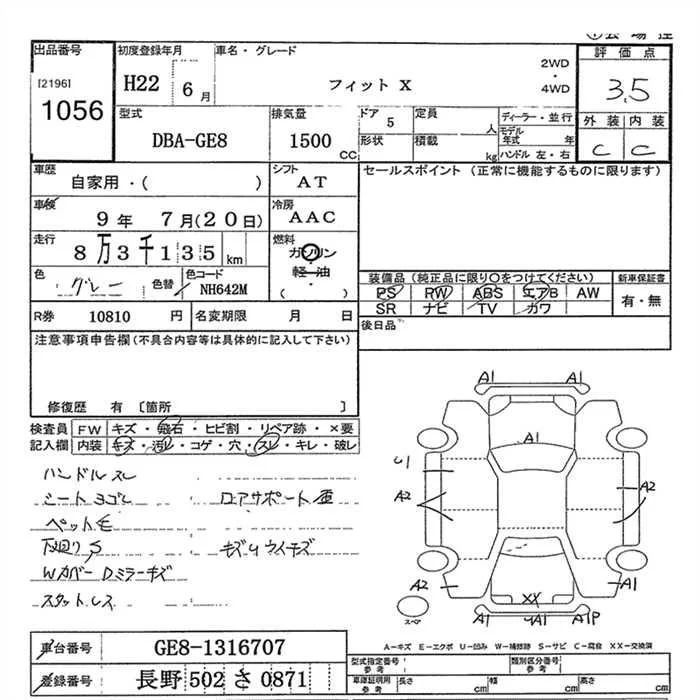 出品番号
[2196]
1056
初度登録年月
H22 6月
車名・グレード
フィット X
2WD
・
4WD
評価点
3.5
外装 内装
C C
型式
DBA-GE8
排気量
1500 CC
ドア 5
形状
定員 人
積載 kg
ディーラー・並行
モデル年式 年
ハンドル 左・右
車歴
自家用・( )
シフト
AT
セールスポイント (正常に機能するものに限ります)
車検
9年 7月(20日)
冷房
AAC
走行
8万3千135 km
燃料
ガソリン
軽油
・
( )
色
グレー
色替
色コード
NH642M
装備品 (純正品に限り○をつけてください)
PS RW ABS エアB AW
SR ナビ TV カワ
新車保証書
有・無
R券 10810 円
名変期限 月 日
後日品
注意事項申告欄(不具合内容等は具体的に記入して下さい)
修復歴 有 〔箇所 〕
検査員
記入欄
FW キズ・飛石・ヒビ割・リペア跡・×要
内装 キズ・汚レ・コゲ・穴・スレ・キレ・破レ
ハンドルスレ
シートヨゴレ
ペット毛
下廻りS
Wカバー Dミラーキズ
スタットレス
A1 A1
A1
U1
A2
A2
A2
A1
XX
A1 A1P
スペア
A−キズ E−エクボ U−凹み W−補修跡 S−サビ C−腐食 XX−交換済
車台番号
GE8-1316707
登録番号
長野 502 さ 0871
型式指定番号
参考
類別区分番号
参考
車庫証明用
参考
長さ cm
幅 cm
高さ cm